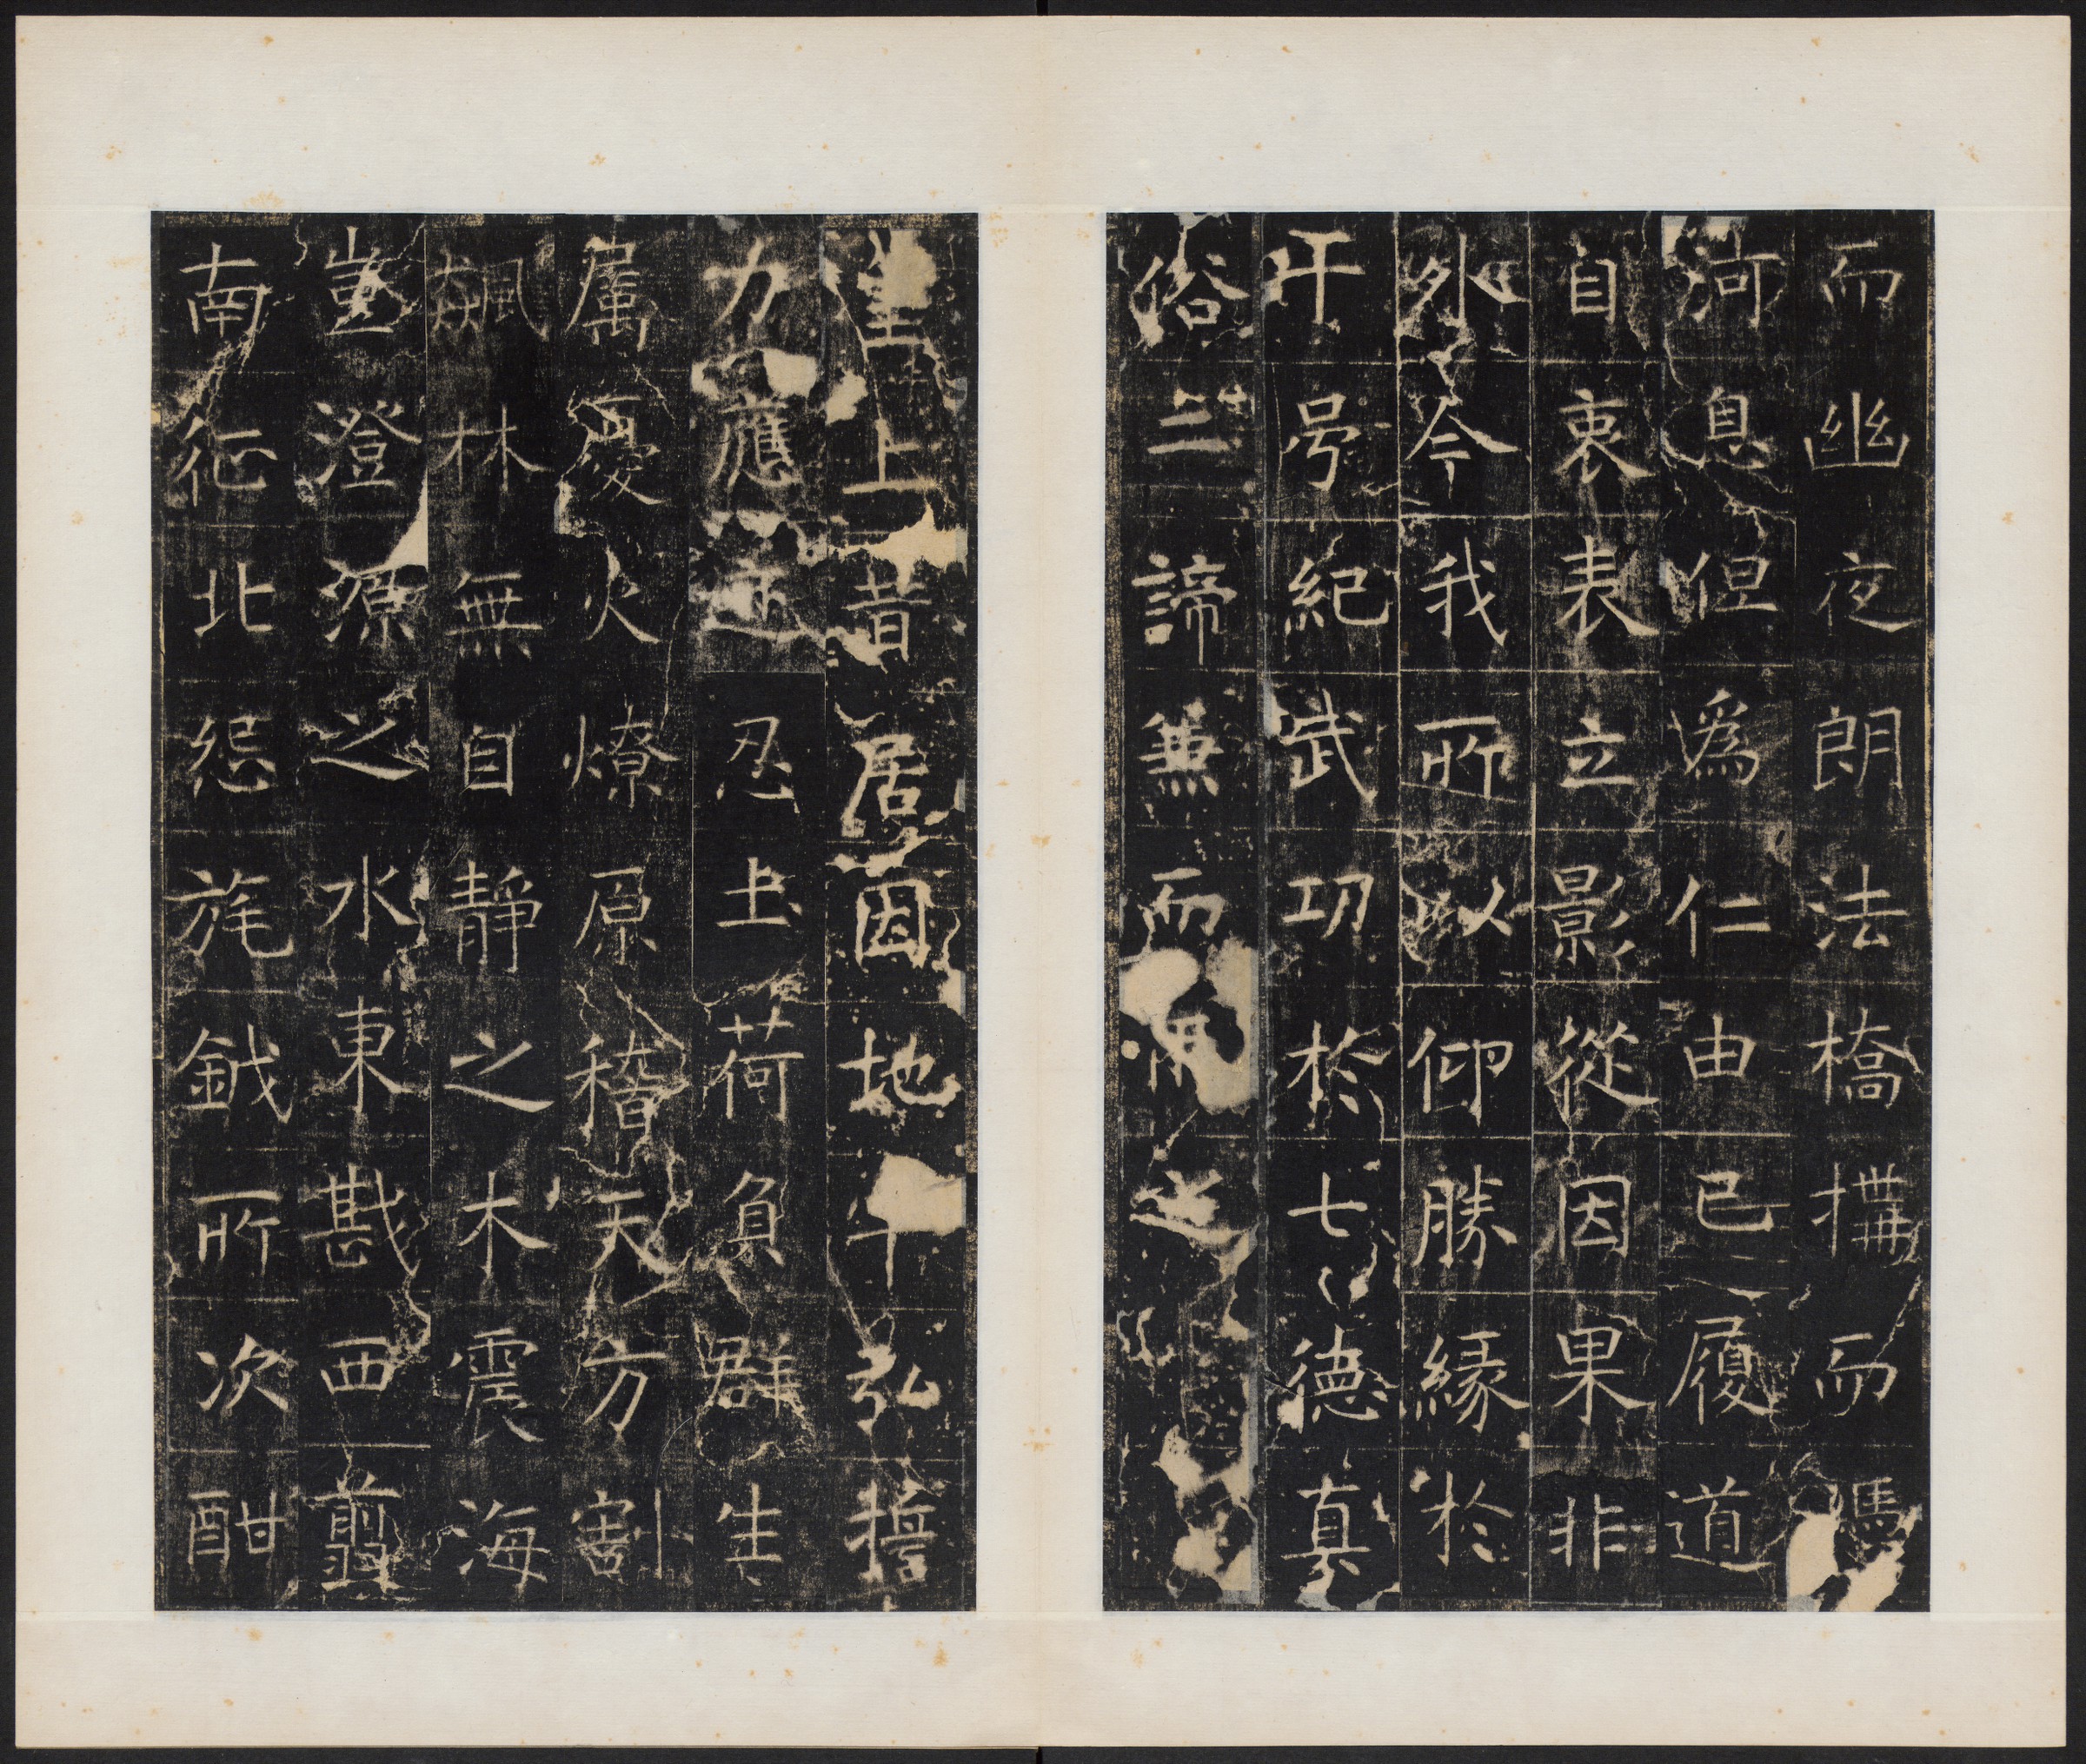 而幽夜朗法橋搆而馮
河息但爲仁由已履道
自衷表立影從因果非
外今我所以仰勝緣於
号紀武功於七德真
俗二諦兼而兩之
皇上昔居因地弘擔
力應迹忍土荷負群生
属火燎原稽天方割
飆林無自静之木震海
豈澄源之水東戡西翦
南征北怨旄鉞所次酣